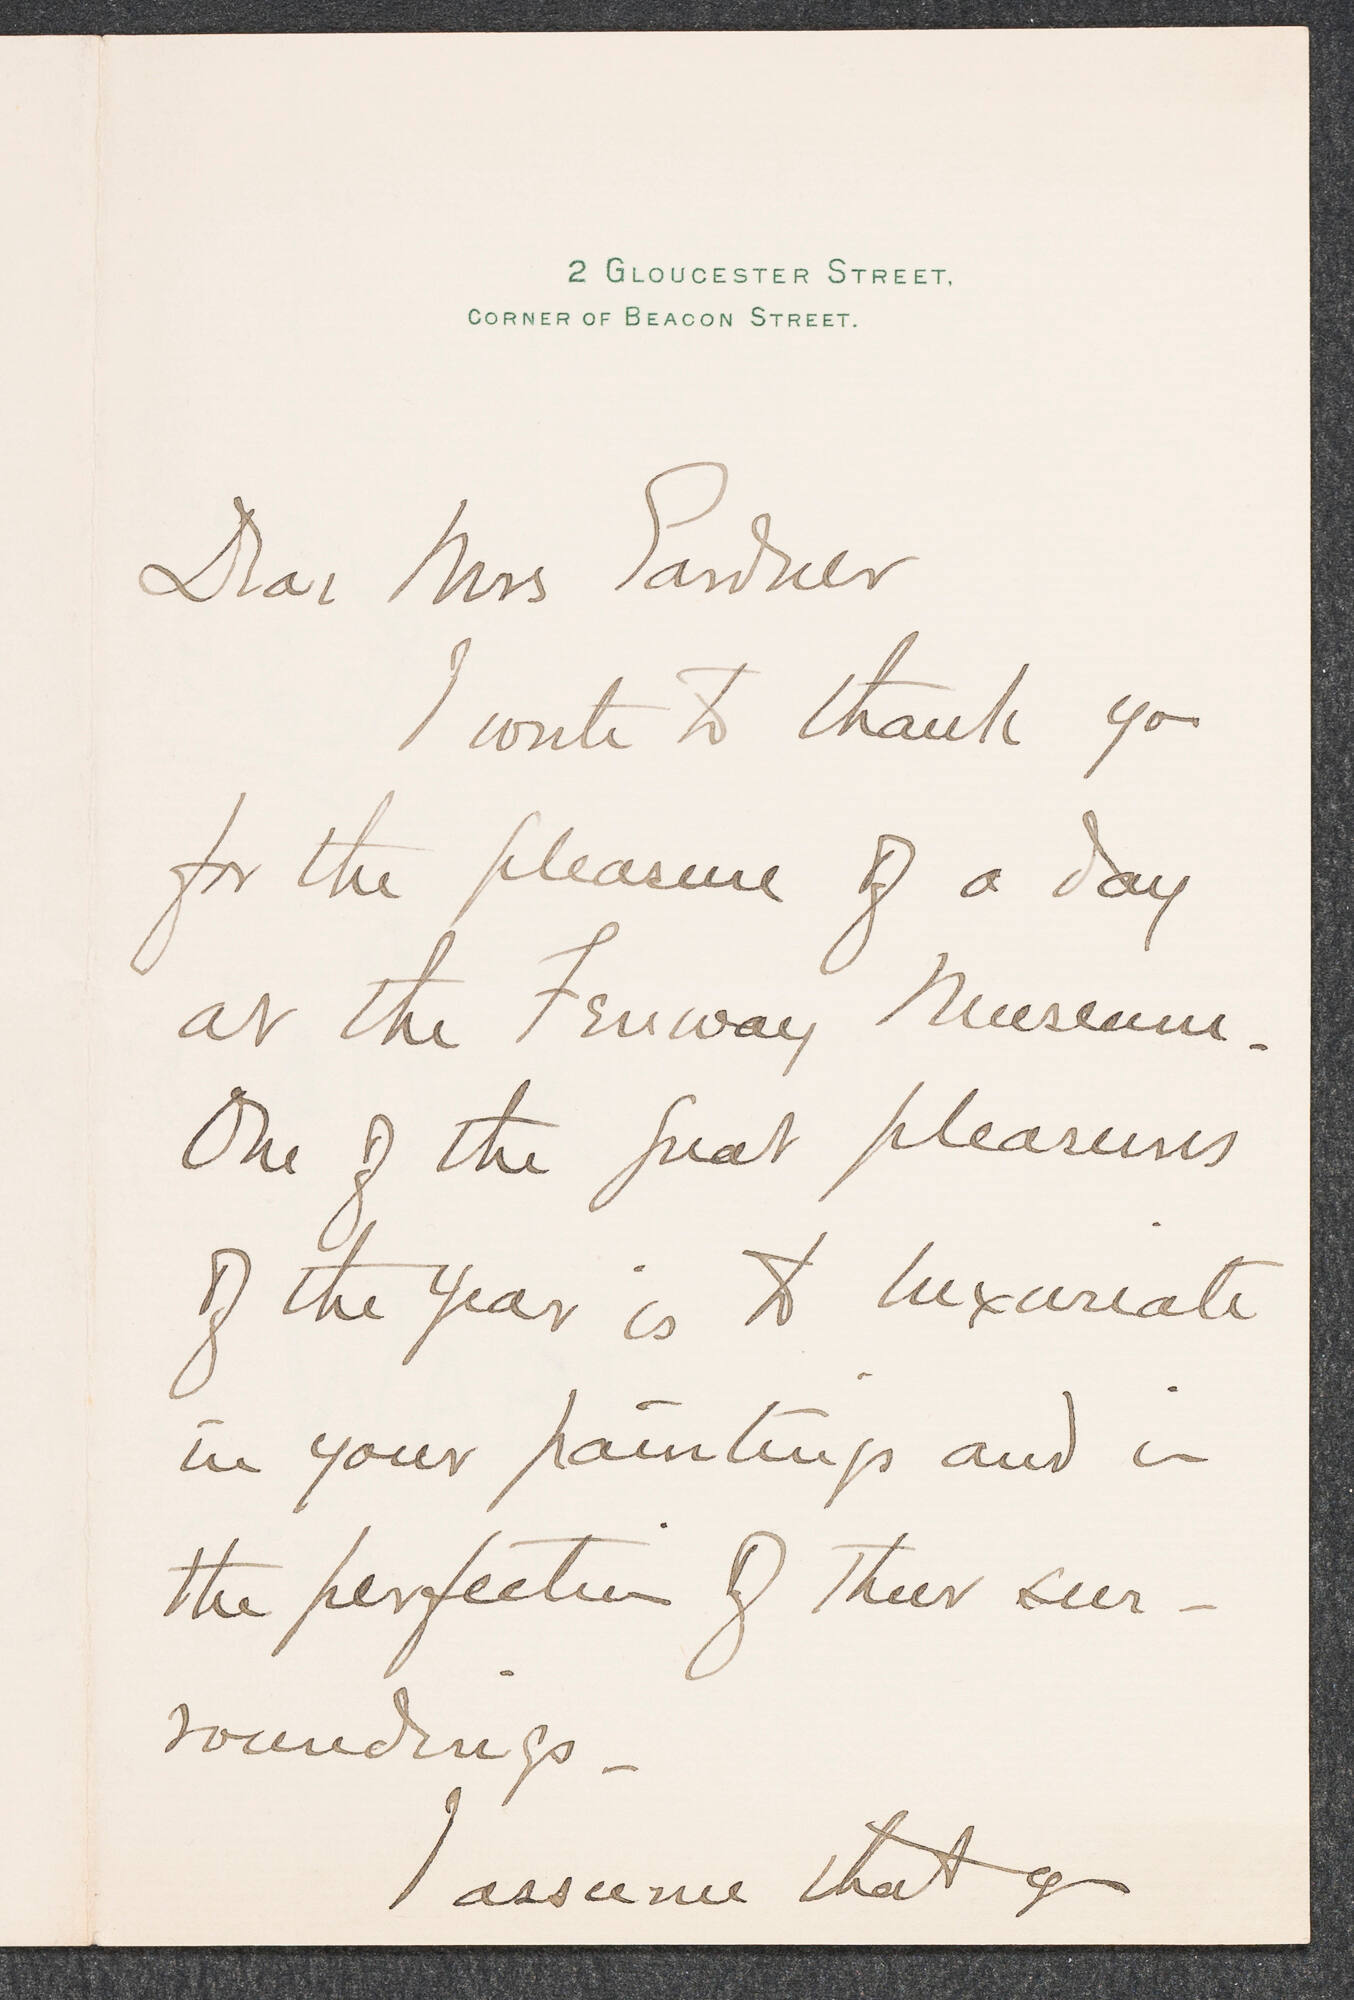 2 GLOUCESTER STREET,
CORNER OF BEACON STREET.
Dear Mrs Gardner
I write to thank yo
for the pleasure of a day
at the Fenway Museum.
One of the great pleasures
of the year is to luxuriate
in your paintings and in
the perfection of their sur-
roundings -
I assume that yo